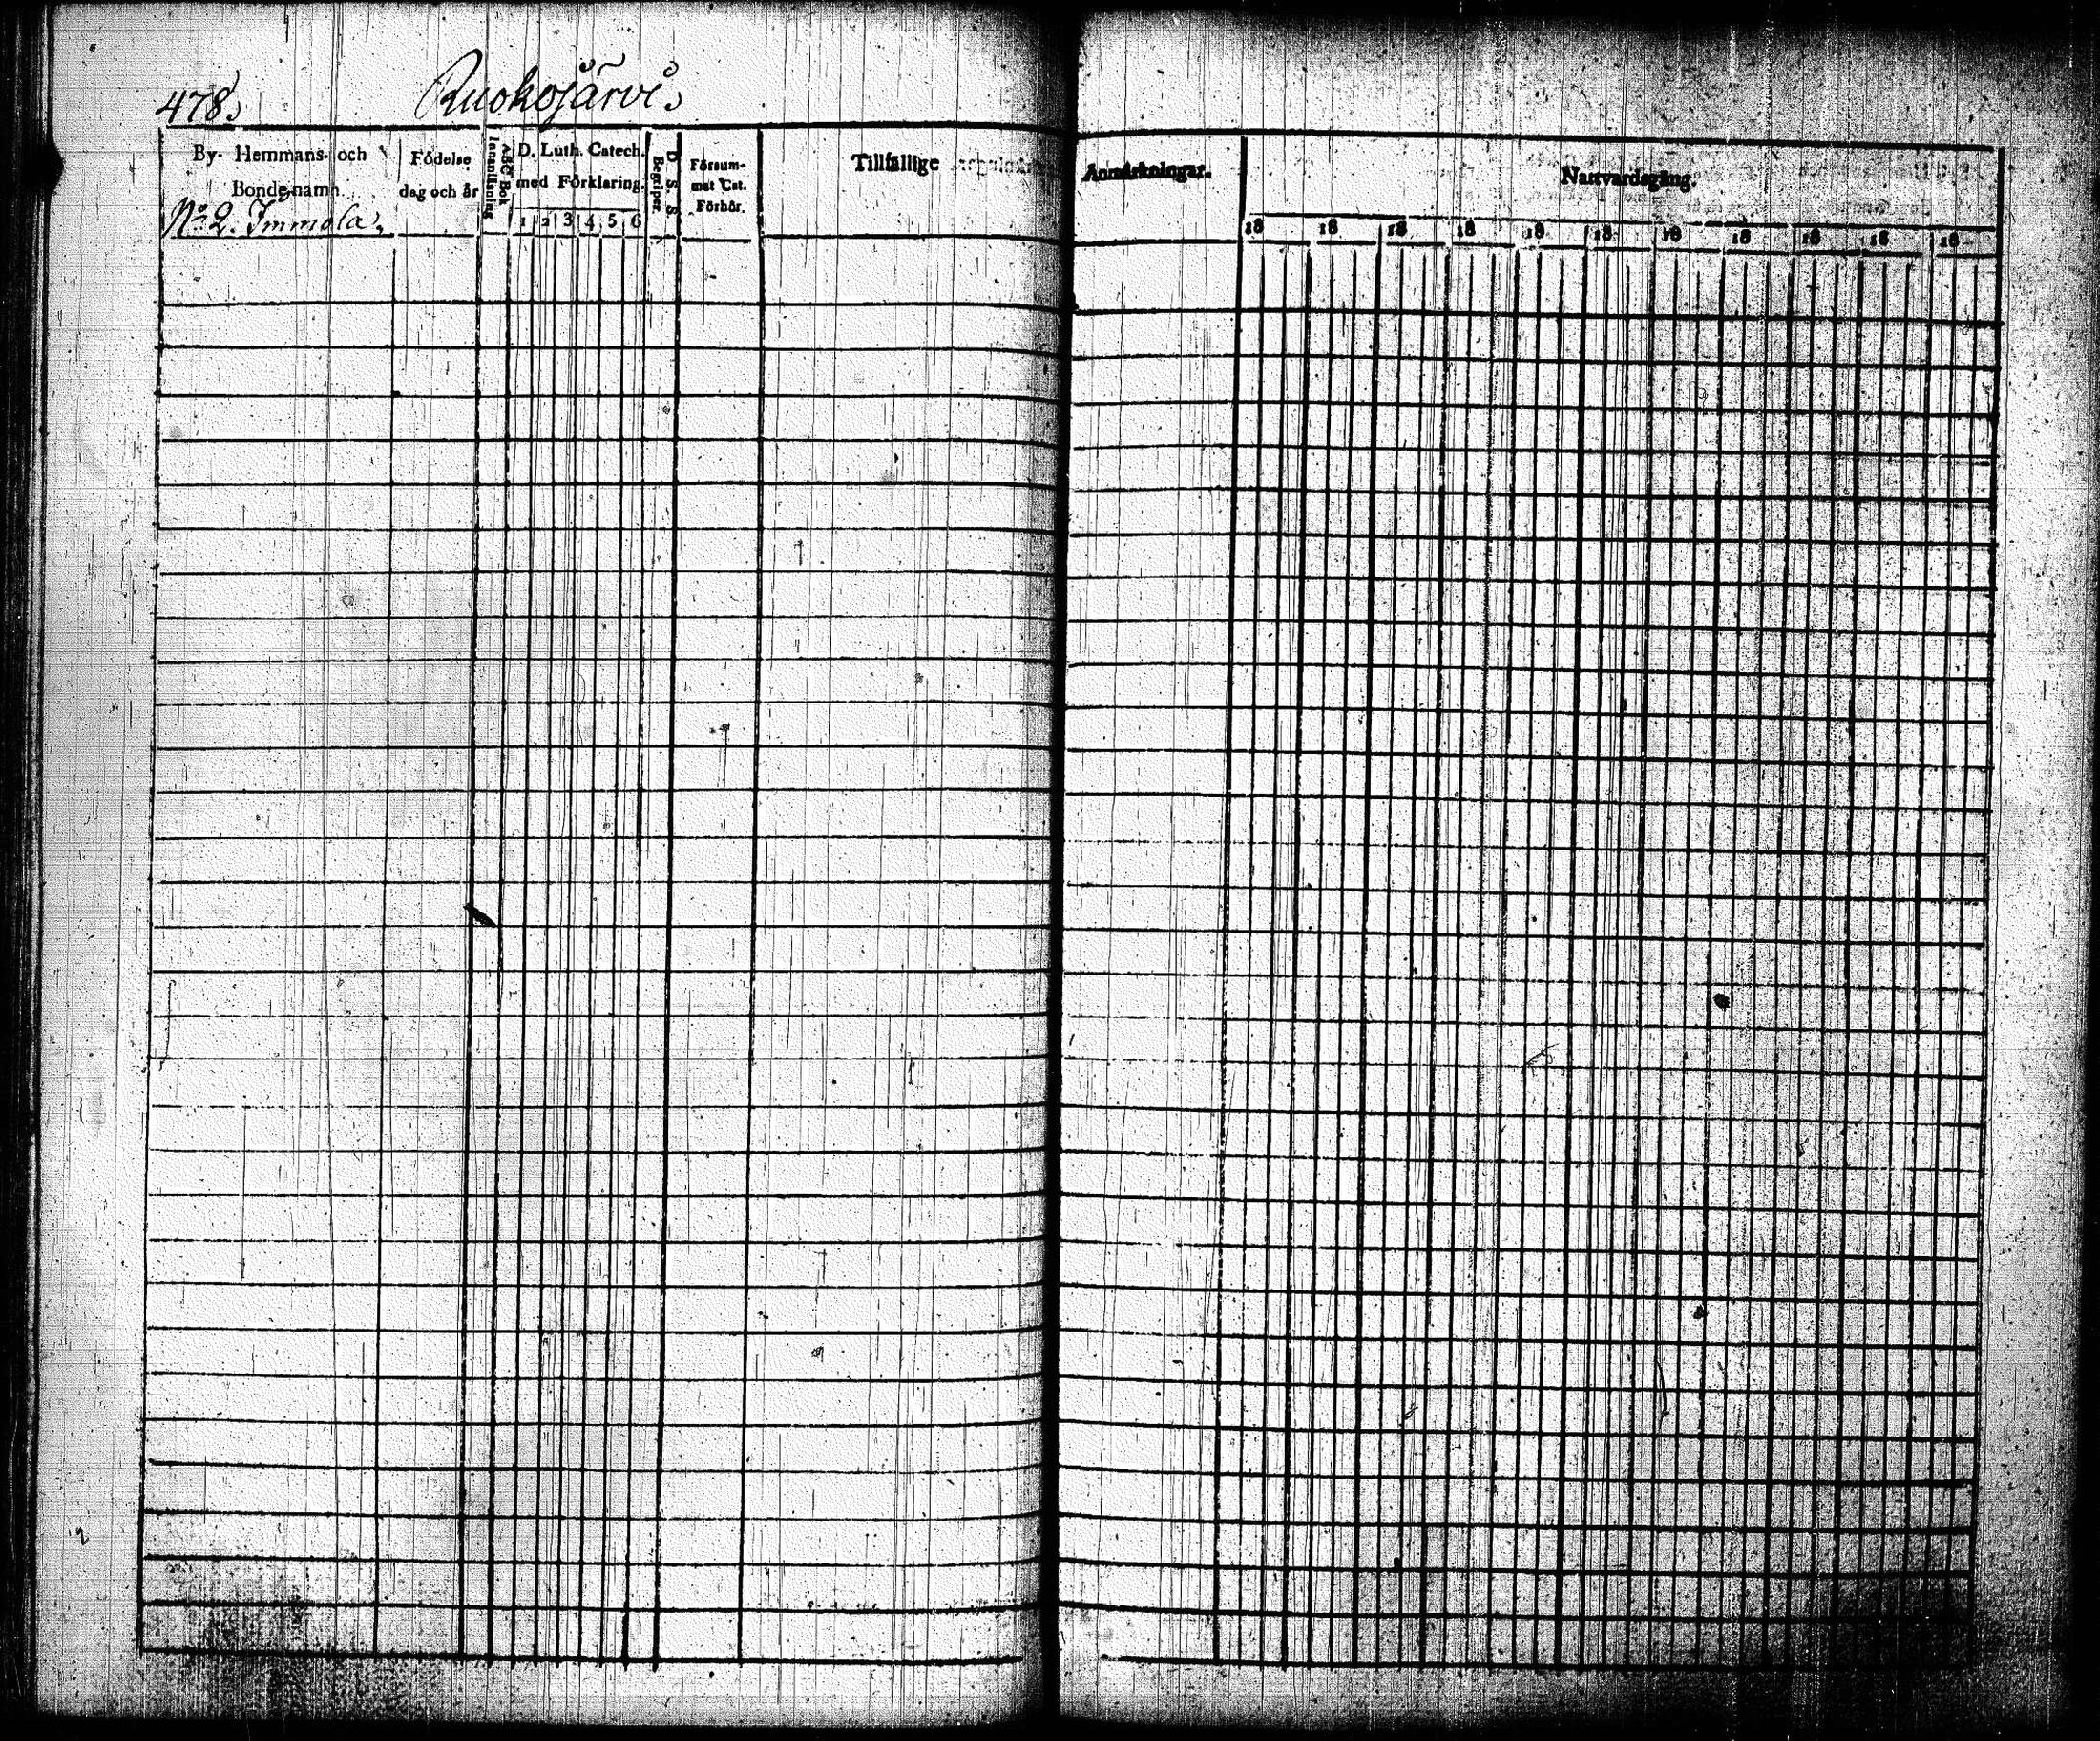 478.
Ruokojärvi.
By- Hemmans- och
Bondenamn.
No 2. Immola.
Födelse
dag och år
Innanläsning
ABC Bok
D. Luth. Catech.
med Förklaring.
1 2 3 4 5 6
D. S. S.
Begriper.
Försum-
mat Cat.
Förhör.
Tillfällige
Anmärkningar.
Nattvardsgång.
18 18 18 18 18 18 18 18 18 18 18